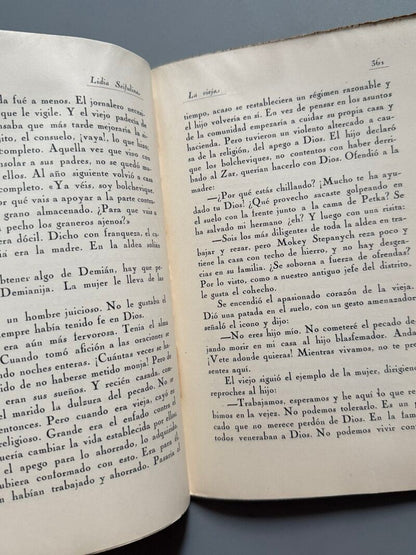 Lidia Seifulina
da fué a menos. El jornalero neci-
que le vigile. Y el viejo padecía de
saba que más tarde mejoraría la si-
, el consuelo, ¡vaya!, lo encontraba
completo. Aquella vez que vivo
onsolar a sus padres, no se quedó ma-
completo. Al Año siguiente volvió a casa
olcheviques. «Ya véis, soy bolchevique.
qué vais a apoyar a la parte contra-
grano almacenado. ¿Para que vais a
yo pecho los graneros ajenos?»
era dócil. Dicho con franqueza, el
ía era la madre. En la aldea solían
btener algo de Demián, hay que
Demianija. La mujer le lleva de las
un hombre juicioso. No le gustaba el
siempre había tenido fe en Dios.
era aún más fervorosa. Tenía el alma
Cuando tomó afición a las oraciones
noches enteras. ¡Cuántas veces se
de no haberse metido monja! Pero le
eran sus sueños. Y recién casada, con
el marido la dulzura del pecado. No
entonces. Pero cuando era vieja, cayó se
religioso. Grande era el enfado contra
quería cambiar la vida establecida por ellos.
el apego por lo ahorrado, lo adquirido
ubiera conformado con esto. Era para el
n habían trabajado y ahorrado. Pasaría el
La vieja
361
tiempo, acaso se restableciera un régimen razonable y
el hijo volvería en sí. En vez de pensar en los asuntos
de la comunidad empezaría a cuidar su propia casa y
hacienda. Pero tuvieron un violento altercado a cau-
sa de la religión, del apego a Dios. El hijo declaró
que los bolcheviques, no contentos con haber derri-
bado al Zar, querían hacerlo con Dios. Ofendió a la
madre:
—¿Por qué estás chillando? ¡Mucho te ha ayu-
dado tu Dios! ¿Qué provecho sacaste golpeando en
el suelo con la frente junto a la cama de Petka? ¿Se
ha salvado mi hermano ¿eh? Y luego con una risita:
—Sois los más diligentes de toda la aldea en tra-
bajar y rezar, pero Mokey Stepanych reza poco y
tiene la casa con techo de hierro, y no hay desgra-
cias en su familia. ¿Se soborna a fuerza de ofrendas?
Por lo visto, como a nuestro antiguo jefe del distrito,
le gusta el cohecho.
Se encendió el apasionado corazón de la vieja.
Dió una patada en el suelo, con un gesto amenazador
señaló el icono y dijo:
—No eres hijo mío. No cometeré el pecado de
jando morir en mi casa al hijo blasfemador. Anda
¡Vete adonde quieras! Mientras vivamos, no te pre-
sentes aquí.
El viejo siguió el ejemplo de la mujer, dirigiendo
reproches al hijo:
—Trabajamos, esperamos y he aquí lo que re-
bimos en la vejez. No podemos tolerarlo. Es un
que no merece perdón de Dios. En la
todos veneraban a Dios. No podemos vivir con